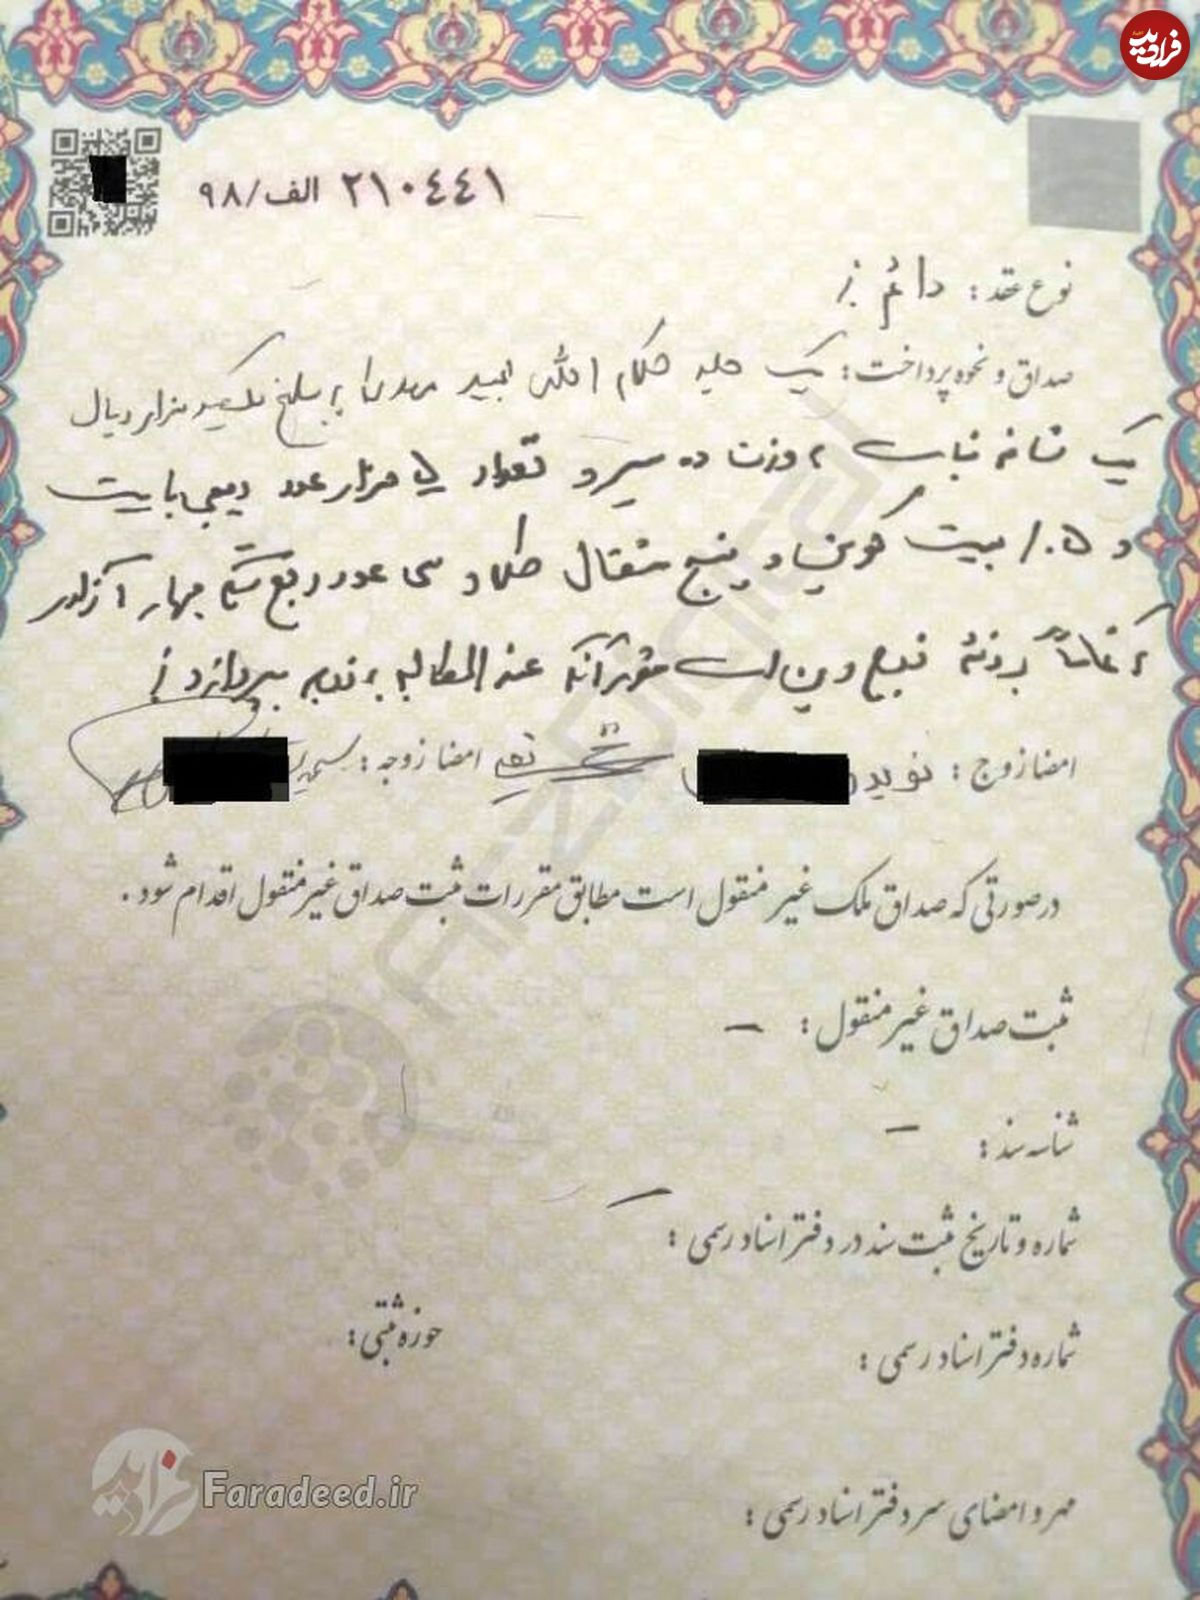 فرادید
۲۱۰۴۴۱ الف/۹۸
نوع عقد: دائم
صداق و نحوه پرداخت: یک جلد کلام الله مجید مهدی به مبلغ یکصد هزار ریال
یک شاخه نبات به وزن ده سیر و تعداد هزار عدد دیجی بایت
و ۱.۵ بیت کوین و پنج مثقال طلا و سی عدد ربع سکه بهار آزادی
که تماماً بر ذمه زوج دین است و عندالمطالبه به زوجه بپردازد
امضا زوج: نوید امضا زوجه:
در صورتی که صداق ملک غیر منقول است مطابق مقررات ثبت صداق غیر منقول اقدام شود.
ثبت صداق غیر منقول: –
شناسه سند: –
شماره و تاریخ ثبت سند در دفتر اسناد رسمی: –
شماره دفتر اسناد رسمی: حوزه ثبتی:
مهر و امضای سر دفتر اسناد رسمی:
ARZDIGITAL
فرادید Faradeed.ir